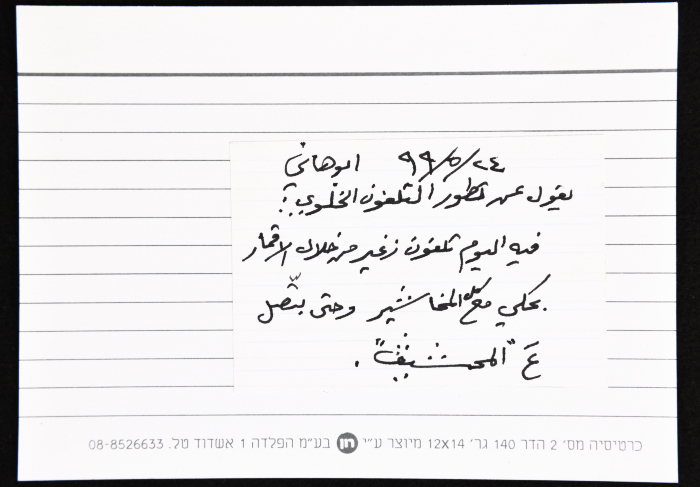 ٢٤/٥/٩٩ ابوهاني
يقول عن تطور التلفون الخلوي:
فيه اليوم تلفون زغير من خلال الاقمار
بحكي مع كل المخاشير وحتى بتصل
ع "المحششين".
כרטיסיה מס' 2 הדר 140 גר' 12X14 מיוצר ע"י חן בע"מ הפלדה 1 אשדוד טל. 08-8526633